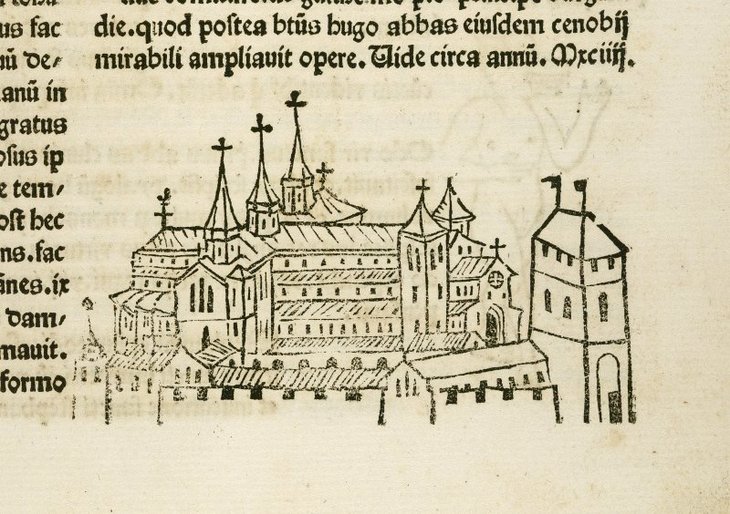 us fac
nū de/
anū in
gratus
osus ip
e tem/
ost hec
ns.fac
ānes.ix
dam/
mauit.
formo
die.quod postea btūs hugo abbas eiusdem cenobij
mirabili ampliauit opere. Uide circa annū. Mxciiij.